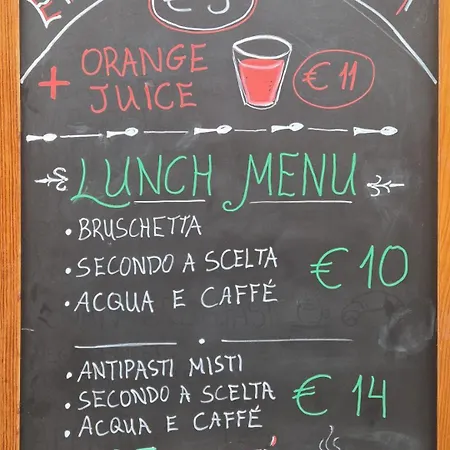 + ORANGE
JUICE
€ 11
LUNCH MENU
• BRUSCHETTA
• SECONDO A SCELTA
• ACQUA E CAFFÉ
€ 10
• ANTIPASTI MISTI
• SECONDO A SCELTA
• ACQUA E CAFFÉ
€ 14